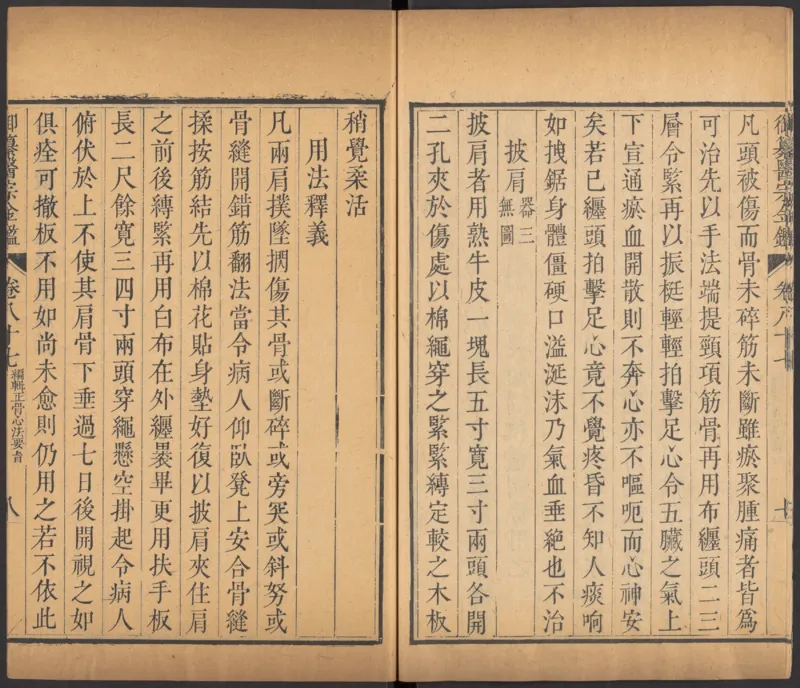 凡頭被傷而骨未碎筋未斷雖瘀聚腫痛者皆爲
可治先以手法端提頸項筋骨再用布纏頭二三
層令緊再以振梃輕輕拍擊足心令五臟之氣上
下宣通瘀血開散則不奔心亦不嘔呃而心神安
矣若已纏頭拍擊足心竟不覺疼昏不知人痰响
如拽鋸身體僵硬口溢涎沫乃氣血垂絶也不治
披肩 器三無圖
披肩者用熟牛皮一塊長五寸寬三寸兩頭各開
二孔夾於傷處以棉繩穿之緊緊縛定較之木板
稍覺柔活
用法釋義
凡兩肩撲墜擱傷其骨或斷碎或旁突或斜努或
骨縫開錯筋翻法當令病人仰臥凳上安合骨縫
揉按筋結先以棉花貼身墊好復以披肩夾住肩
之前後縛緊再用白布在外纏裹畢更用扶手板
長二尺餘寬三四寸兩頭穿繩懸空掛起令病人
俯伏於上不使其肩骨下垂過七日後開視之如
俱痊可撤板不用如尚未愈則仍用之若不依此
御纂醫宗金鑑 卷八十七 編輯正骨心法要旨 八